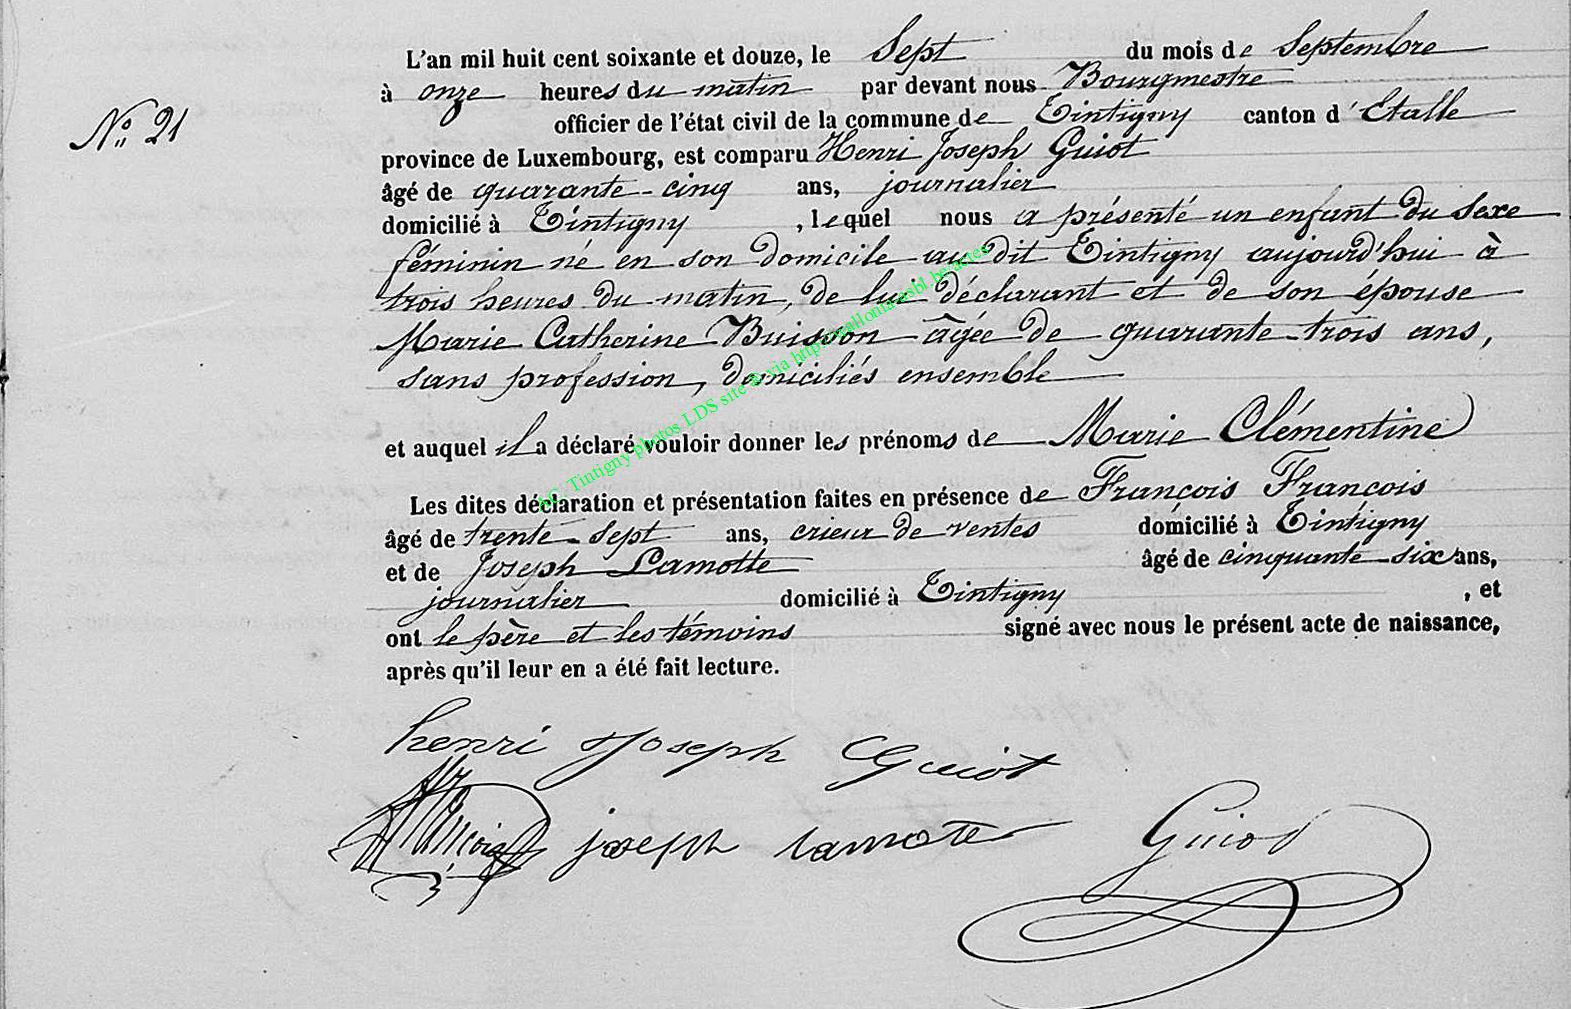 L'an mil huit cent soixante et douze, le Sept du mois de Septembre
à onze heures du matin par devant nous Bourgmestre
N° 21
officier de l'état civil de la commune de Tintigny canton d'Etalle
province de Luxembourg, est comparu Henri Joseph Guiot
âgé de quarante-cinq ans, journalier
domicilié à Tintigny, lequel nous a présenté un enfant du sexe
féminin né en son domicile au dit Tintigny aujourd'hui à
trois heures du matin, de lui déclarant et de son épouse
Marie Catherine Buisson âgée de quarante-trois ans,
sans profession, domiciliés ensemble
et auquel il a déclaré vouloir donner les prénoms de Marie Clémentine
Les dites déclaration et présentation faites en présence de François François
âgé de trente-sept ans, crieur de ventes domicilié à Tintigny
et de Joseph Lamotte âgé de cinquante-six ans,
journalier domicilié à Tintigny, et
ont le père et les témoins signé avec nous le présent acte de naissance,
après qu'il leur en a été fait lecture.
henri Joseph Guiot
François joseph lamotte Guiot
A.C. Tintigny photos LDS site via http://wallonia-asbl.be/actes